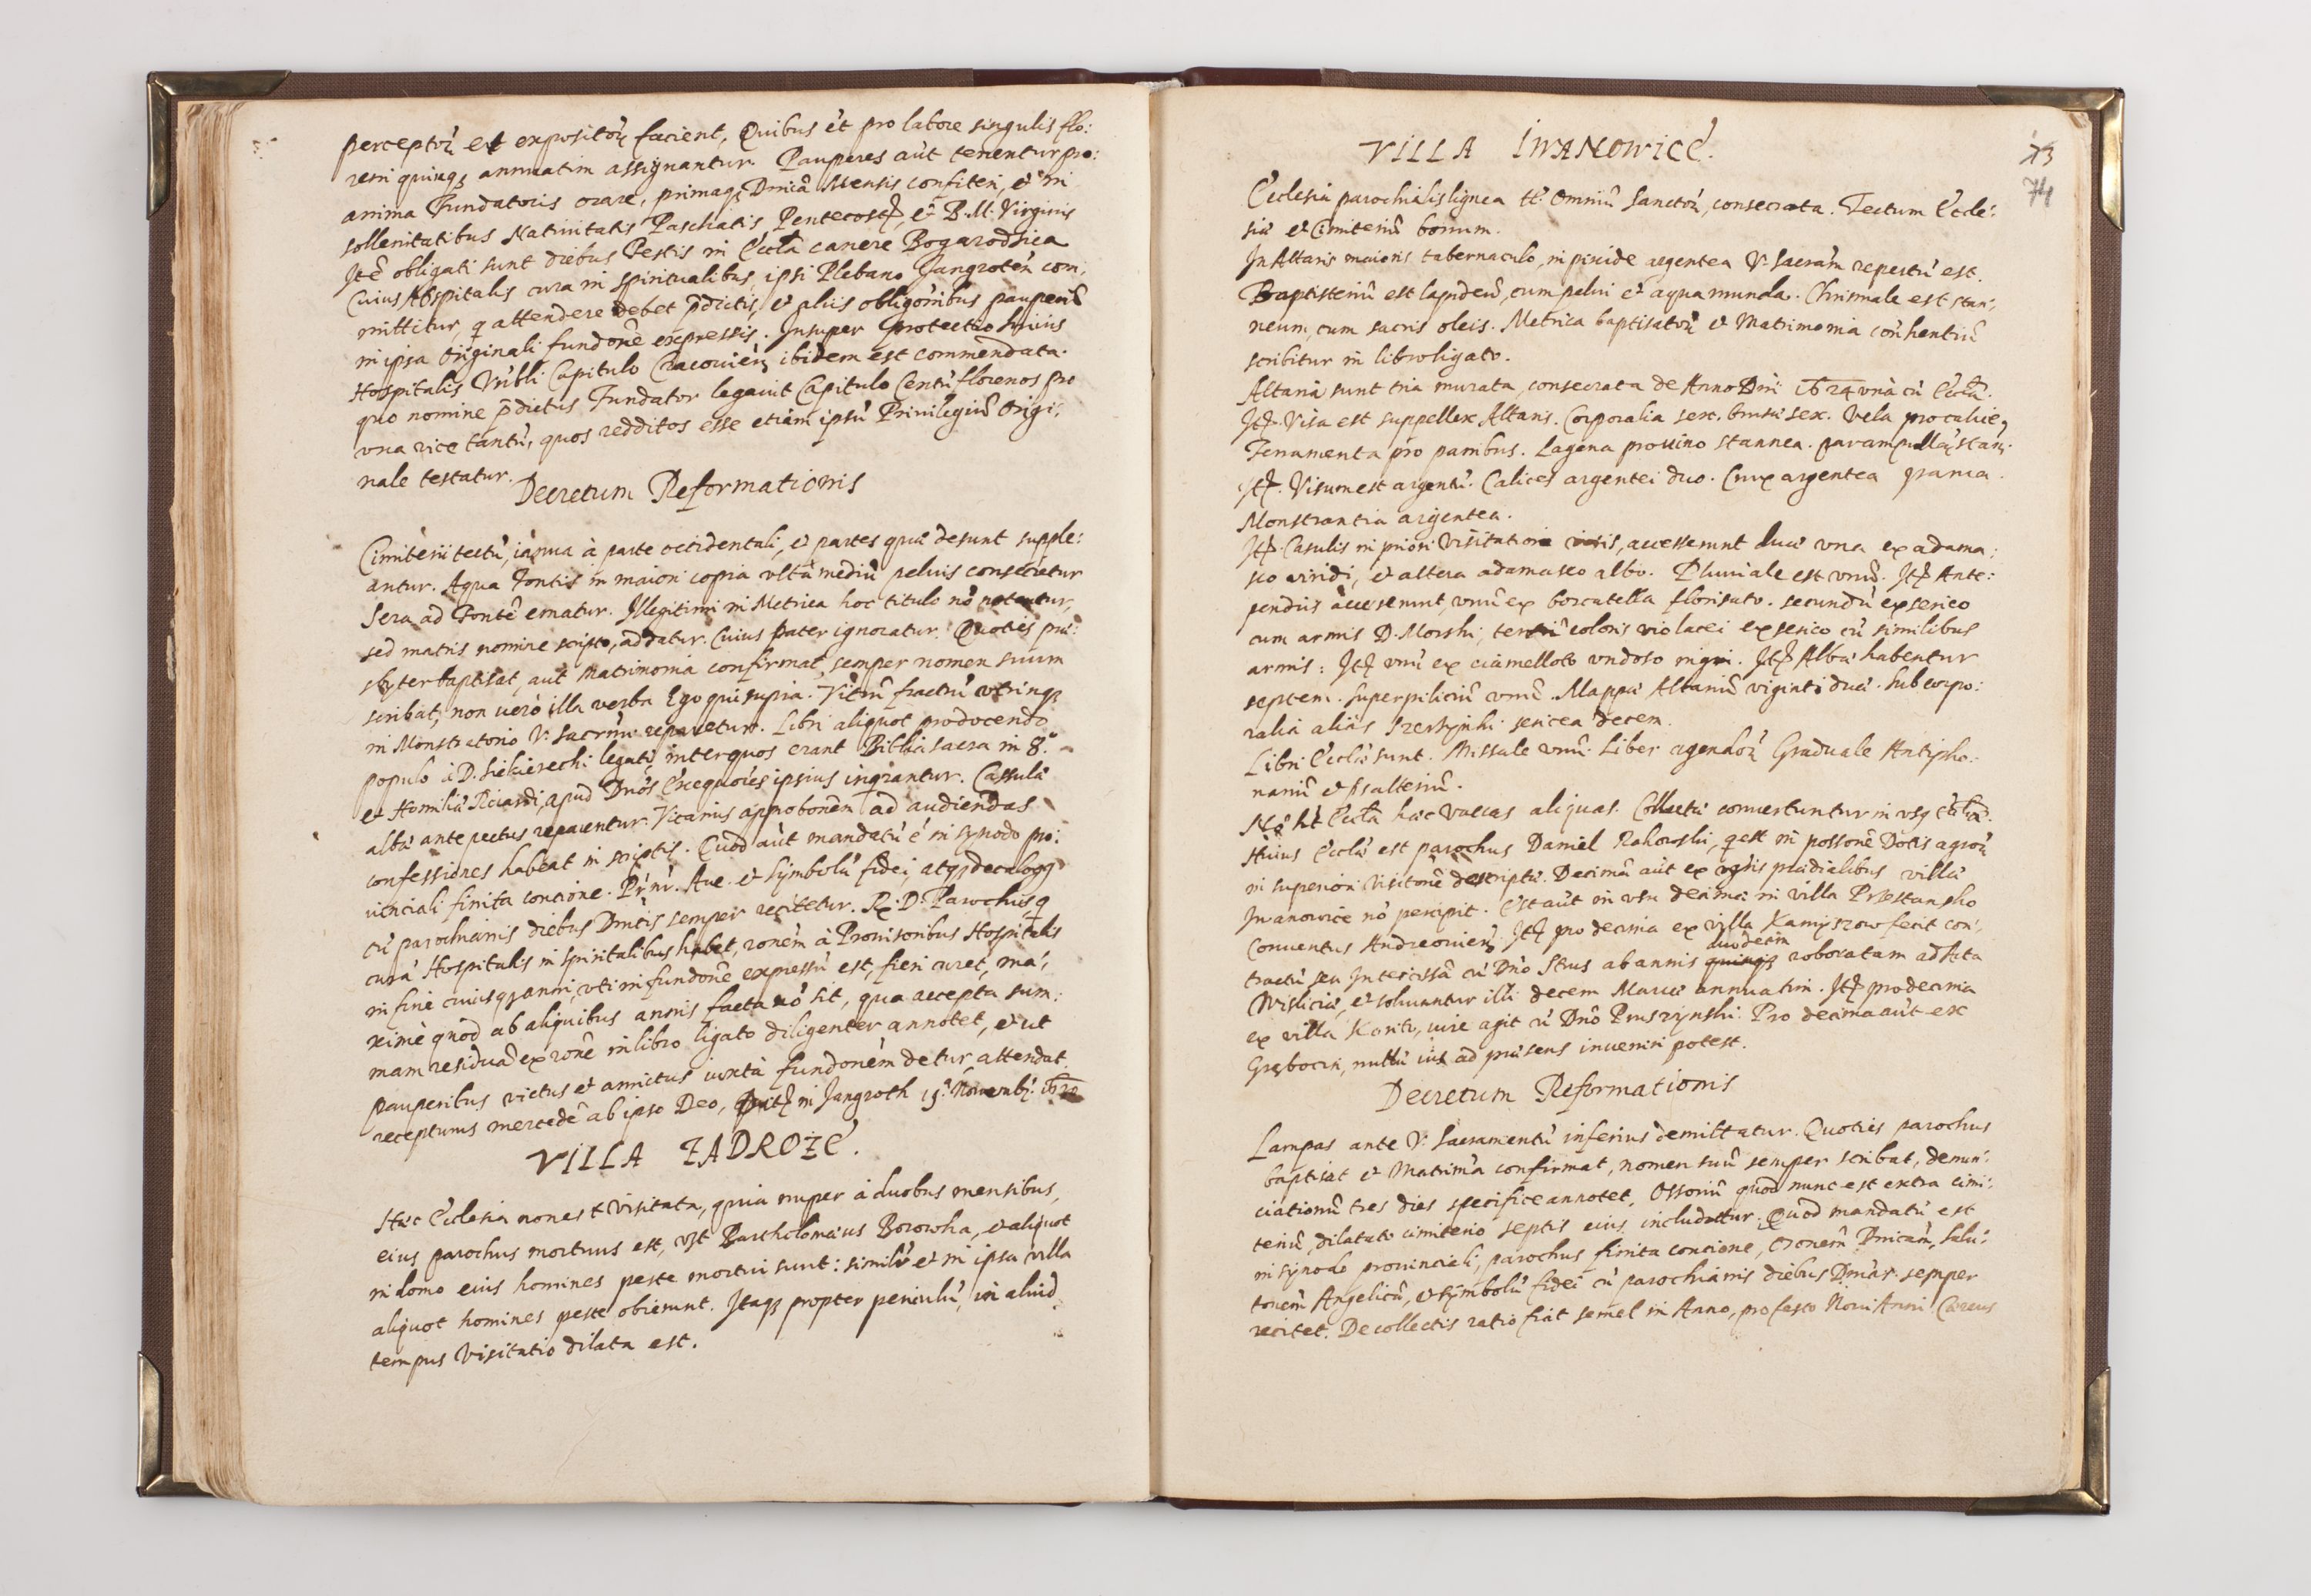 perceptoꝝ et expositoꝝ facient, Quibus ẻt pro labore singulis flo:
reni quinqꝫ annuatim assignantur. Pauperes aũt tenentur pro
anima Fundatoris orare, primaqꝫ Dnicâ Mensis confiteri, et in
sollenitatibus Nativitatis Paschatis, Pentecostꝭ, et B. M. Virginis
Itẽ obligati sunt diebus Festis in Eccla canere Bogarodzica
Cuius Hospitalis cura in spiritualibus, ipsi Plebano Jangroteń com:
mittitur, q attendere debet p̃dictis, et aliis obligõnibus pauperũ
in ipsa Originali fundoñe expressis. Insuper protectio huius
Hospitalis Vñbli Capitulo Cracovień ibidem est commendata.
quo nomine p̃dictus Fundator legavit Capitulo Centũ florenos pro
una vice tantũ, quos redditos esse etiàm ipsũ Privilegiũ Origi:
nale testatur.
Decretum Reformationis
Cimiterii tectũ, ianua à parte occidentali, et partes quæ desunt supple:
antur. Aqua Fontis in maiori copia ultà mediũ pelvis consecretur
Sera ad Fontẽ ematur. Illegitimi in Metrica hoc titulo nõ notantur,
sed matris nomine scripto, addatur. Cuius pater ignoratur. Quoties præ:
sbyter baptisat, aut Matrimonia confirmat, semper nomen suum
scribat, non verò illa verba Ego qui supra. Vitrũ fractũ utrinqꝫ
in Monstratorio V. Sacrm̃i reparetur. Libri aliquot producendo
populo à D. Siekierecki legati, inter quos erant Biblia sacra in 8.º
et Homiliæ Ricardi, apud Dnõs Exequões ipsius inqrantur. Cassula
alba ante pectus reparentur. Vicarius approboñem ad audiendas
confessiones habeat in scriptis. Quod aũt mandatũ ẻ in synodo pro:
vinciali finita concione. Pr̃ nr̃. Ave. et Symbolũ fidei, atqꝫ decalogꝰ
cũ parochianis diebus Dnicis semper recitetur. R. D. Parochus, q
curã Hospitalis in spiritalibus habet, ronem à Provisoribus Hospitalis
in fine cuiusqꝫ anni, uti in fundonẽ expressũ est, fieri curet, ma:
ximè quòd ab aliquibus annis facta nõ sit, qua accepta sum:
mam residuã ex ronẽ in libro ligato diligenter annotet, et ut
pauperibus victus et amictus iuxtà fundonèm detur, attendat
recepturus mercedẽ ab ipso Deo, in Jangroth 15.ª Novembꝛ.
VILLA ZADROŻE.
Hæc Ecclesia non est visitata, quia nuper à duobus mensibus,
eius parochus mortuus est, Bartholomæus Borowka, et aliquot
in domo eius homines peste mortui sunt: similr et in ipsa villa
aliquot homines peste obierunt. Itaqꝫ propter periculũ, in aliud
tempus Visitatio dilata est.
73
74
VILLA IWANOWICE.
Ecclesia parochialis lignea tt. Omniũ Sanctoꝝ, consecrata. Tectum Eccle:
siæ et Cimiteriũ bonum.
In Altaris maioris tabernaculo, in pixide argentea V. Sacram repertũ est.
Baptisteriũ est lapideũ, cum pelvi et aqua munda. Chrismale est stan:
neum, cum sacris oleis. Metrica baptisatoꝝ et Matrimonia coñhentiũ
scribitur in libro ligato.
Altaria sunt tria murata, consecrata de Anno Dni 1624 unà cũ Eccla.
Itꝭ. Visa est suppellex Altaris. Corporalia sex. bursæ sex. Vela pro calice,
Feramenta pro panibus. Lagena pro vino stannea. par ampullaꝝ stan:
Itꝭ. Visum est argentũ. Calices argentei duo. Crux argentea parva.
Monstrantia argentea.
Itꝭ. Casulis in priori Visitatione visis, accesserunt duæ una ex adama:
sco viridi, et altera adamasco albo. Pluviale est unũ. Itꝭ Ante:
pendiis accesserunt, unũ ex borcatella florisato. secundũ ex serico
cum armis D. Morski, tertiũ coloris violacei ex serico cũ similibus
armis: Itꝭ unũ ex ciamelloto undoso nigri. Itꝭ Albæ habentur
septem. Superpiliciũ unũ. Mappæ Altariũ viginti duæ. Subcorpo:
ralia aliàs sericea decem.
Libri Ecclæ sunt. Missale unũ. Liber agendoꝝ Graduale Antipho:
nariũ et psalteriũ.
Nõ ht Eccla hæc vaccas aliquas. Collectæ convertuntur in usꝫ Ecclæ.
Huius Ecclæ est parochus Daniel Rakowski, q est in possonẽ Dotis agroꝝ
in superiori Visitonẽ descriptæ. Decimã aũt ex agris prædialibus villæ
Iwanowice nõ percipit. Est aũt in usu decimæ in villa Przestansko
Conventus Andreovień. Itꝭ pro decima ex villa Kamyszow fecit con:
tractũ seu Intercissã cũ Dno Strus ab annis quinqꝫ duodecim roboratam ad Acta
Wislicia, et solvuntur illi decem Marcæ annuatim. Itꝭ pro decima
ex villa Skorito, iure agit cũ Dnõ Pruszynski. Pro decima aũt ex
Grębocin, nullũ ius ad præsens inveniri potest.
Decretum Reformationis
Lampas ante V. Sacramentũ inferius demittatur. Quoties parochus
baptisat et Matrim̃a confirmat, nomen suũ semper scribat, denun:
ciationũ tres dies specifice annotet. Ossoriũ quod nunc est extra cimi:
teriũ, dilatato cimiterio septis eius includatur. Quod mandatũ est
in synodo provinciali, parochus finita concione, Oronem̃ Dnicam̃, Salu:
tonem̃ Angelicã, et symbolũ fidei cũ parochianis diebus Dnicis semper
recitet. De collectis ratio fiat semel in Anno, pro festo Novi Anni Cereus